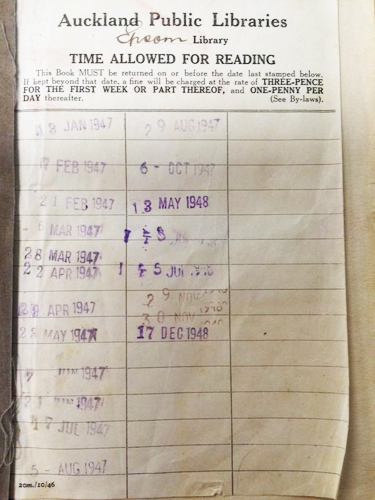 Auckland Public Libraries
Epsom Library
TIME ALLOWED FOR READING
This Book MUST be returned on or before the date last stamped below.
If kept beyond that date, a fine will be charged at the rate of THREE-PENCE
FOR THE FIRST WEEK OR PART THEREOF, and ONE-PENNY PER
DAY thereafter. (See By-laws).
JAN 1947
29 AUG 1947
FEB 1947
6 - OCT 1947
21 FEB 1947
13 MAY 1948
MAR 1947
28 MAR 1947
22 APR 1947
JUL
APR 1947
29 NOV
30 NOV
MAY 1947
17 DEC 1948
JAN 1947
JUN 1947
17 JUL 1947
5 - AUG 1947
20m./10/46